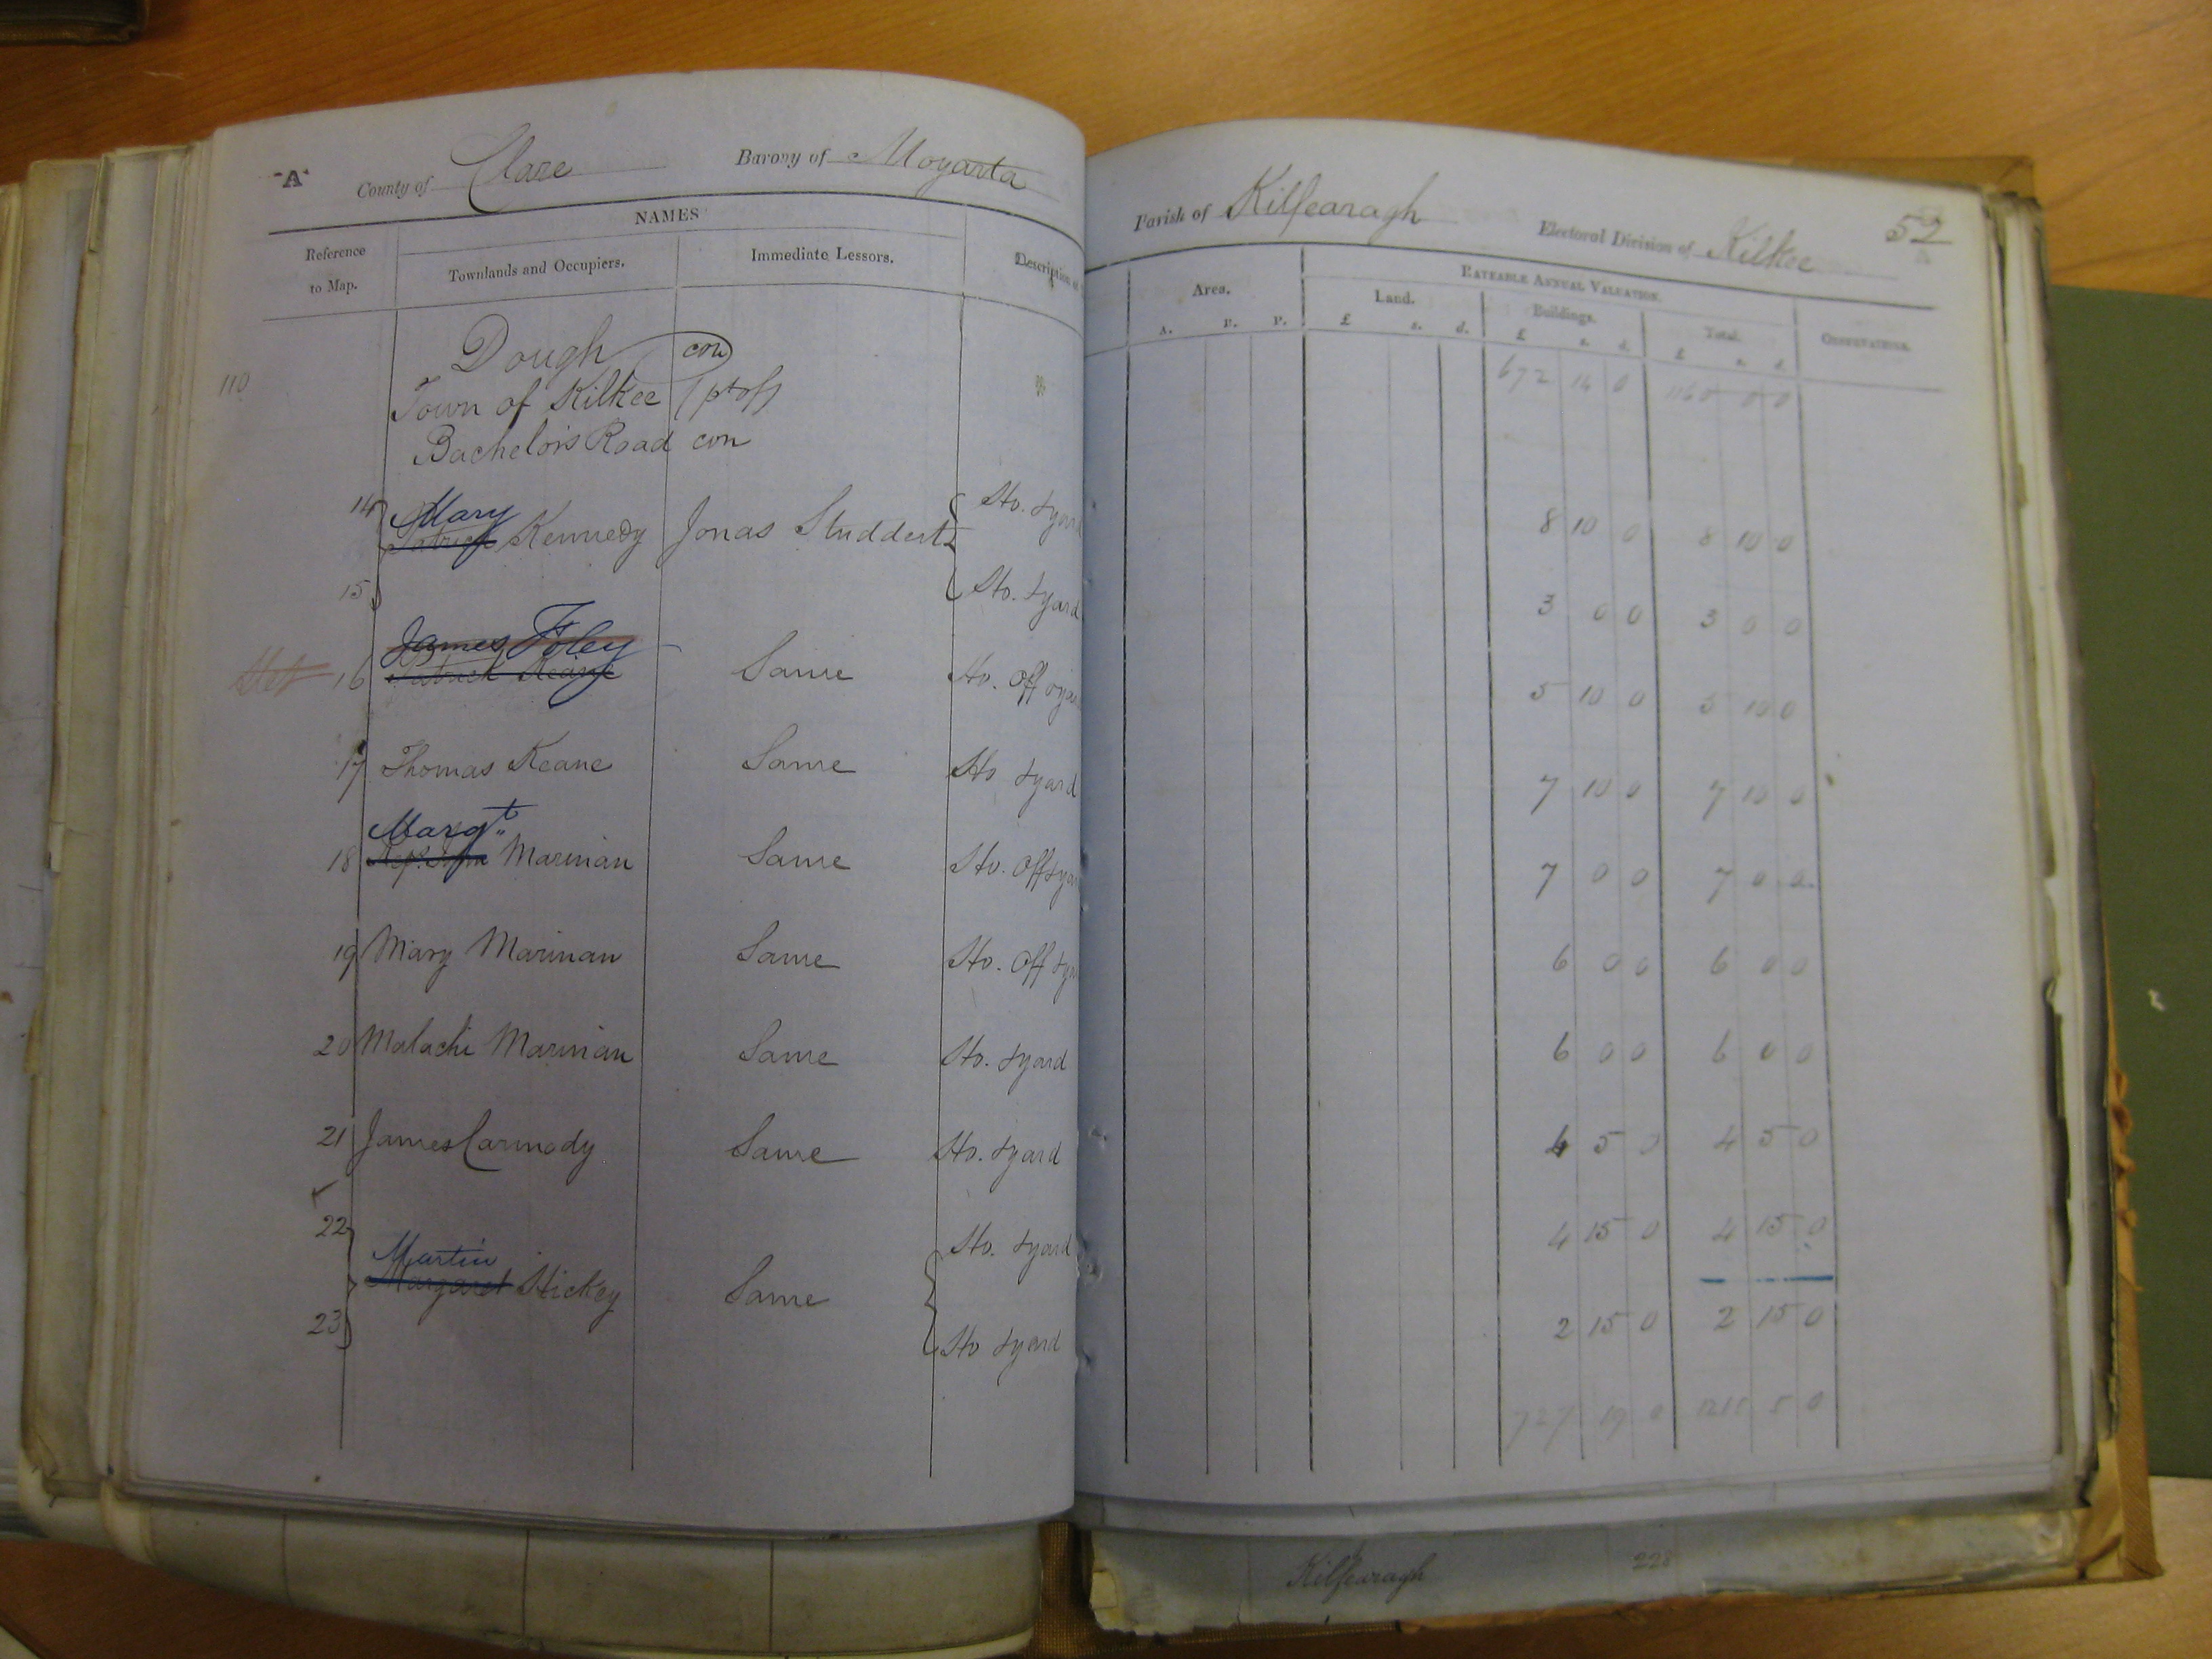 "A" County of Clare Barony of Moyarta
Parish of Kilfearagh Electoral Division of Kilkee 52
NAMES
Reference to Map. Townlands and Occupiers. Immediate Lessors. Description of
Area. RATEABLE ANNUAL VALUATION. OBSERVATIONS.
Land. Buildings. Total.
A. R. P. £ s. d. £ s. d. £ s. d.
110 Dough con 672 14 0
Town of Kilkee (pt of)
Bachelors Road con
14 Mary Ho. & yard 8 10 0 8 10 0
Patrick Kennedy Jonas Studdert
15 Ho. & yard 3 0 0 3 0 0
James Foley
Stet 16 Patrick Keane Same Ho. Off & yard 5 10 0 5 10 0
17 Thomas Keane Same Ho & yard 7 10 0 7 10 0
Margt
18 Reps. John Marinan Same Ho. Off & yar 7 0 0 7 0 0
19 Mary Marinan Same Ho. Off & ya 6 0 0 6 0 0
20 Malachi Marinan Same Ho. & yard 6 0 0 6 0 0
21 James Carmody Same Ho. & yard 4 5 0 4 5 0
22 Ho. & yard 4 15 0 4 15 0
Martin
Margaret Hickey Same
23 Ho & yard 2 15 0 2 15 0
727 19 0 1215 5 0
Kilfearagh 228